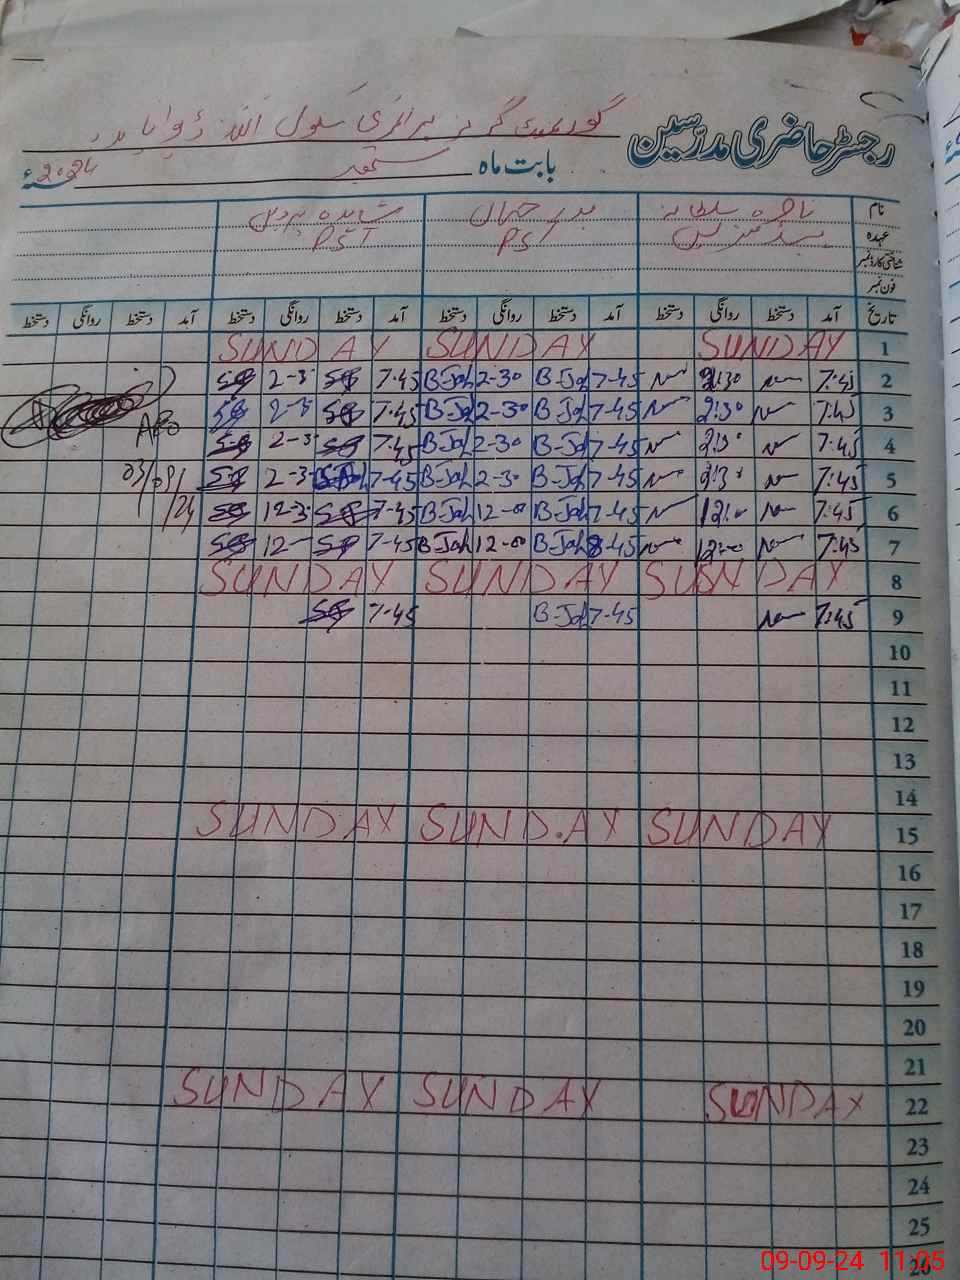 رجسٹر حاضری مدرسین گورنمنٹ گرلز پرائمری سکول
بابت ماہ ستمبر 2024ء
نام ناصرہ سلطانہ بدر جہاں شاہدہ پروین
عہدہ ہیڈ مسٹریس PST PST
شناختی کارڈ نمبر
فون نمبر
تاریخ آمد دستخط روانگی دستخط آمد دستخط روانگی دستخط آمد دستخط روانگی دستخط آمد دستخط روانگی دستخط
1 SUNDAY SUNDAY SUNDAY
2 7:45 2:30 7-45 B-Jah 2-30 B-Jah 7-45 SP 2-3 SP
3 7:45 2:30 7-45 B-Jah 2-30 B-Jah 7-45 SP 2-3 SP
4 7:45 2:30 7-45 B-Jah 2-30 B-Jah 7-45 SP 2-3 SP
5 7:45 2:30 7-45 B-Jah 2-30 B-Jah 7-45 2-3 SP
03/09/24
6 7:45 12:00 7-45 B-Jah 12-00 B-Jah 7-45 SP 12-3 SP
7 7:45 12:00 8-45 B-Jah 12-00 B-Jah 7-45 SP 12- SP
8 SUNDAY SUNDAY SUNDAY
9 7:45 7-45 B-Jah 7-45 SP
10
11
12
13
14
15 SUNDAY SUNDAY SUNDAY
16
17
18
19
20
21
22 SUNDAY SUNDAY SUNDAY
23
24
25
26
09-09-24 11:05